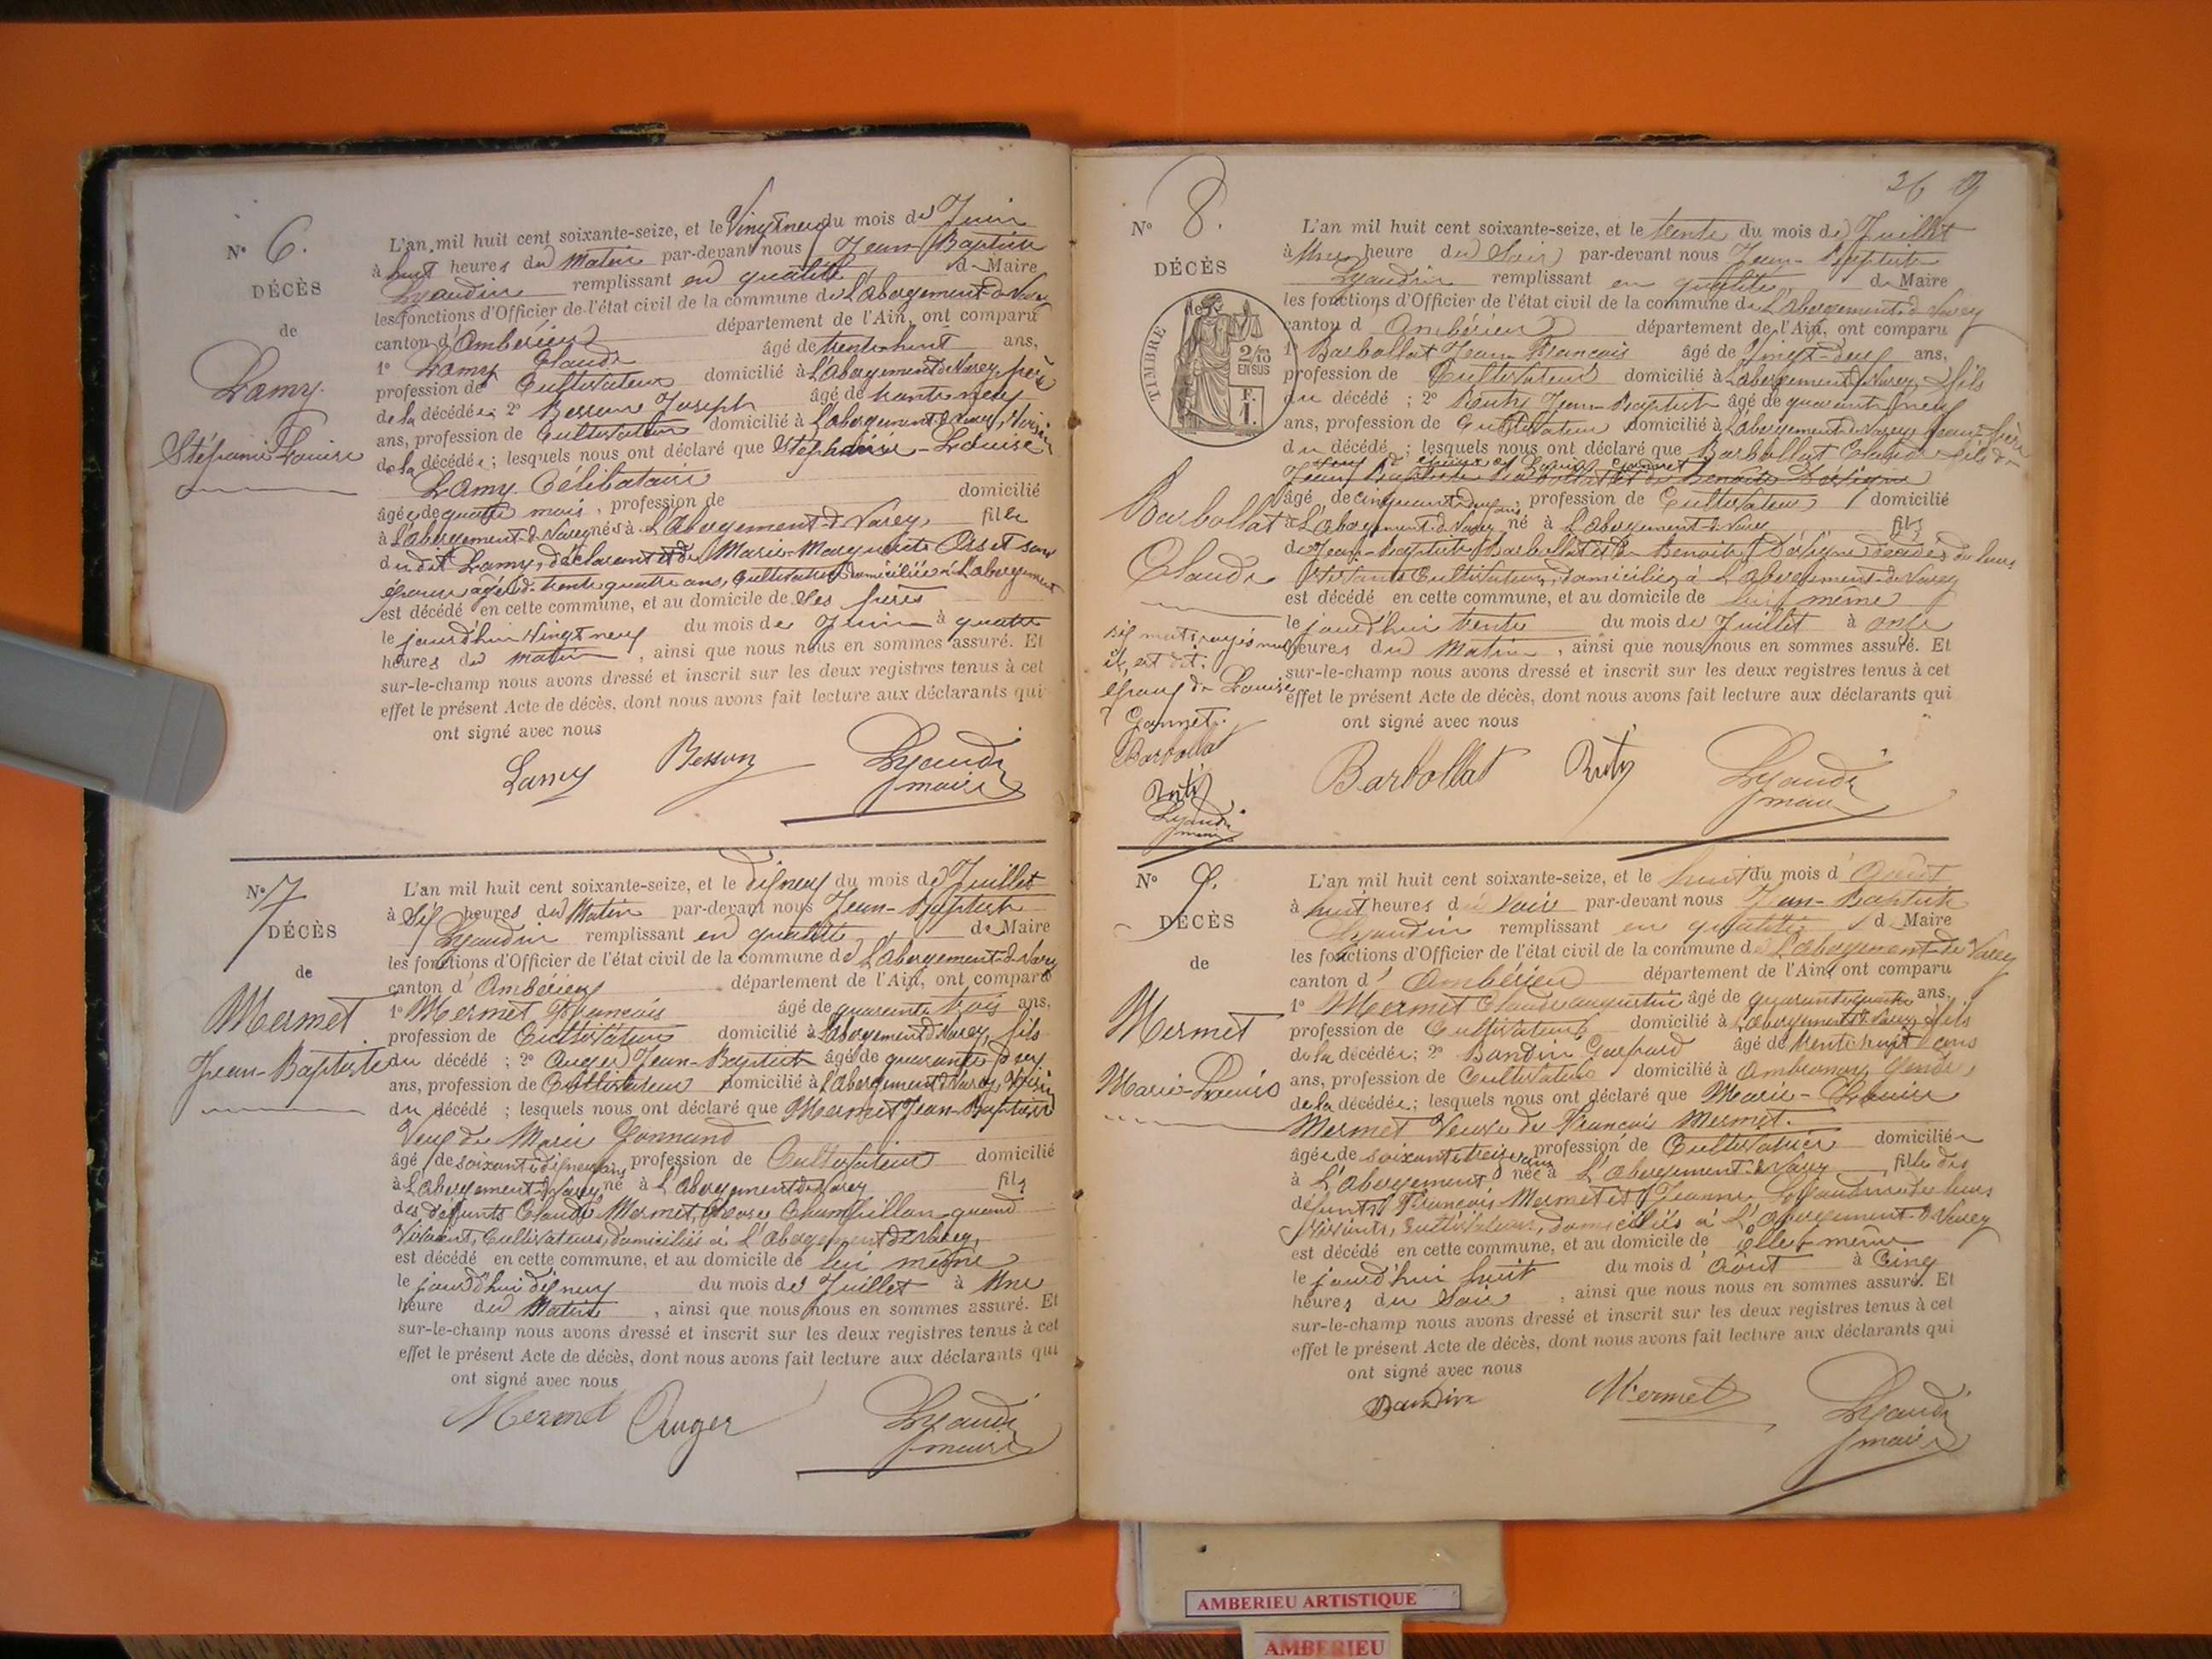 N° 6.
DÉCÈS
de
Lamy
Stéfanie Louise
L'an mil huit cent soixante-seize, et le Vingt neuf du mois de Juin
à huit heures du Matin par-devant nous Jean-Baptiste
Lyaudin remplissant en qualité de Maire
les fonctions d'Officier de l'état civil de la commune de L'abergement-de-Varey
canton d'Ambérieu département de l'Ain, ont comparu
1° Lamy Claude âgé de trente huit ans,
profession de Cultivateur domicilié à L'abergement de Varey, père
de la décédée; 2° Besson Joseph âgé de trente neuf
ans, profession de Cultivateur domicilié à L'abergement de Varey, Voisin
de la décédée; lesquels nous ont déclaré que Stéphanie-Louise
Lamy Célibataire
âgée de quatre mois, profession de domicilié
à L'abergement-de-Varey née à L'Abergement-de Varey, fille
du dit Lamy, déclarant et de Marie-Marguerite son
épouse âgée de trente quatre ans, Cultivateurs domiciliés à L'abergement
est décédé en cette commune, et au domicile de Ses
le jourd'hui Vingt neuf du mois de Juin à quatre
heures du matin, ainsi que nous nous en sommes assuré. Et
sur-le-champ nous avons dressé et inscrit sur les deux registres tenus à cet
effet le présent Acte de décès, dont nous avons fait lecture aux déclarants qui
ont signé avec nous
Lamy Besson Lyaudin
maire
N° 7
DÉCÈS
de
Mermet
Jean-Baptiste
L'an mil huit cent soixante-seize, et le dix neuf du mois de Juillet
à Six heures du Matin par-devant nous Jean-Baptiste
Lyaudin remplissant en qualité de Maire
les fonctions d'Officier de l'état civil de la commune de L'Abergement-de-Varey
canton d'Ambérieu département de l'Ain, ont comparu
1° Mermet François âgé de quarante trois ans,
profession de Cultivateur domicilié à L'abergement de Varey, fils
du décédé; 2° Auger Jean-Baptiste âgé de quarante
ans, profession de Cultivateur domicilié à L'abergement de Varey, Voisin
du décédé; lesquels nous ont déclaré que Mermet Jean-Baptiste
Veuf de Marie Gonnand
âgé de soixante dix neuf ans, profession de Cultivateur domicilié
à L'abergement de Varey, né à L'abergement de Varey fils
des défunts Claude Mermet, quand
Vivaient, Cultivateurs, domiciliés à L'Abergement de Varey,
est décédé en cette commune, et au domicile de lui même
le jourd'hui dix neuf du mois de Juillet à Une
heure du Matin, ainsi que nous nous en sommes assuré. Et
sur-le-champ nous avons dressé et inscrit sur les deux registres tenus à cet
effet le présent Acte de décès, dont nous avons fait lecture aux déclarants qui
ont signé avec nous
Mermet Auger Lyaudin
maire
26 9
N° 8.
DÉCÈS
de
TIMBRE
2/10
EN SUS
F.
1.
Barbollat
Claude
il est dit:
époux de Louise
Gonnet.
Barbollat
Ruty
Lyaudin
maire
L'an mil huit cent soixante-seize, et le trente du mois de Juillet
à Une heure du Soir par-devant nous Jean-Baptiste
Lyaudin remplissant en qualité de Maire
les fonctions d'Officier de l'état civil de la commune de L'abergement-de Varey
canton d'Ambérieu département de l'Ain, ont comparu
1° Barbollat Jean François âgé de Vingt-deux ans,
profession de Cultivateur domicilié à L'abergement de Varey, fils
du décédé; 2° Ruty Jean-Baptiste âgé de quarante neuf
ans, profession de Cultivateur domicilié à L'abergement-de-Varey, beau-frère
du décédé; lesquels nous ont déclaré que Barbollat Claude fils de
Jean Baptiste Barbollat et de Benoite
âgé de cinquante deux ans, profession de Cultivateur domicilié
à L'abergement-de-Varey né à L'abergement-de-Varey fils
de Jean-Baptiste Barbollat et de Benoite décédés de leurs
Vivants Cultivateurs, domiciliés à L'abergement-de-Varey
est décédé en cette commune, et au domicile de lui même
le jourd'hui trente du mois de Juillet à onze
heures du Matin, ainsi que nous nous en sommes assuré. Et
sur-le-champ nous avons dressé et inscrit sur les deux registres tenus à cet
effet le présent Acte de décès, dont nous avons fait lecture aux déclarants qui
ont signé avec nous
Barbollat Ruty Lyaudin
maire
N° 9.
DÉCÈS
de
Mermet
Marie-Louise
L'an mil huit cent soixante-seize, et le huit du mois d'Août
à huit heures du soir par-devant nous Jean-Baptiste
Lyaudin remplissant en qualité de Maire
les fonctions d'Officier de l'état civil de la commune de L'abergement-de Varey
canton d'Ambérieu département de l'Ain, ont comparu
1° Mermet Claude augustin âgé de quarante quatre ans,
profession de Cultivateur domicilié à L'abergement de Varey, fils
de la décédée; 2° Bandin Gaspard âgé de trente huit ans
ans, profession de Cultivateur domicilié à Ambronay, Gendre,
de la décédée; lesquels nous ont déclaré que Marie-Louise
Mermet Veuve de François Mermet.
âgée de soixante treize ans profession de Cultivatrice domiciliée
à L'abergement née à L'abergement-de-Varey, fille des
défunts François Mermet et Jeanne de leurs
Vivants, Cultivateurs, domiciliés à L'abergement-de Varey
est décédé en cette commune, et au domicile de elle-même
le jourd'hui huit du mois d'Août à Cinq
heures du Soir, ainsi que nous nous en sommes assuré. Et
sur-le-champ nous avons dressé et inscrit sur les deux registres tenus à cet
effet le présent Acte de décès, dont nous avons fait lecture aux déclarants qui
ont signé avec nous
Bandin Mermet Lyaudin
maire
AMBERIEU ARTISTIQUE
AMBERIEU